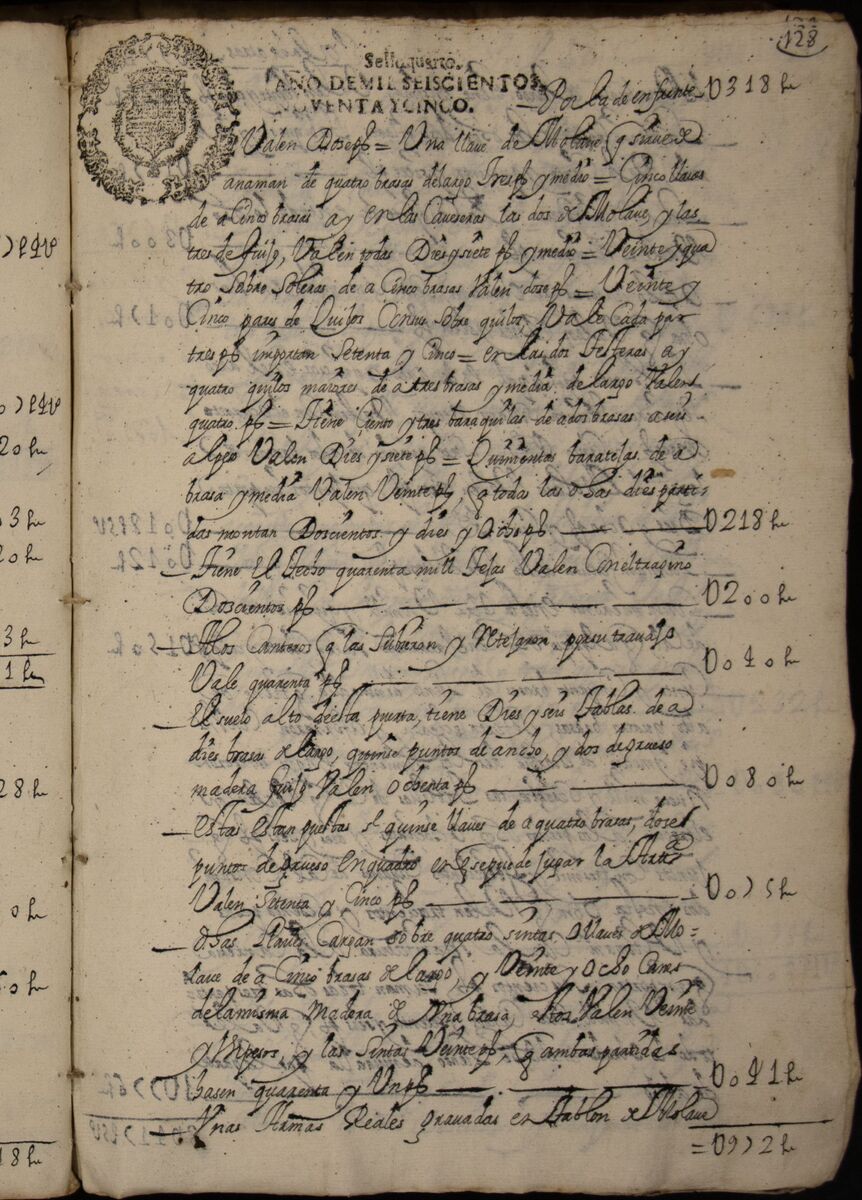 128
Sello quarto.
AÑO DE MIL SEISCIENTOS
NOVENTA Y CINCO.
Por la de enfrente U318 hs
Valen Dose ps = Una llave de Molave q sirve de
anaman de quatro brasas de largo Tres ps y medio = Cinco llaves
de a Cinco brasas ay en las Caveseras las dos de Molave, y las
tres de Guijo, Valen todas Dies y siete ps y medio = Veinte y qua
tro Sobre Soleras de a Cinco brasas Valen dose ps = Veinte y
Cinco pares de Quilos Con su sobre quilos, Vale Cada par
tres ps importan Setenta y Cinco = en las dos Testeras ay
quatro quilos maiores de a tres brasas y media de largo Valen
quatro ps = Tiene Ciento y tres baraquilas de a dos brasas a seis
al peso Valen Dies y siete ps = Quinientas baratejas de a
brasa y media Valen Veinte ps, q todas las dhas dies parti
das montan Doscientos y dies y Ocho ps U218 hs
Tiene El Techo quarenta mill Tejas Valen Con el tragino
Doscientos ps U200 hs
A los Canteros q las Subieron y Retejaron por su travajo
Vale quarenta ps U040 hs
El suelo alto de esta puerta, tiene Dies y seis Tablas de a
dies brasas de largo, quinse puntos de ancho, y dos de grueso
madera Guijo Valen Ochenta ps U080 hs
Estas estan puestas sre quinse llaves de a quatro brasas, dose
puntos de grueso en quadro en q se puede jugar la Artira
Valen Setenta y Cinco ps U075 hs
dhas llaves Cargan sobre quatro sintas O llaves de Mo=
lave de a Cinco brasas de largo, y Veinte y Ocho Canes
de la misma madera de Una brasa estos Valen Veinte
y Un pesos, y las Sintas Veinte ps, q ambas partidas
hasen quarenta y Un ps U041 hs
Unas Armas Reales gravadas en tablon de Molave
= U972 hs